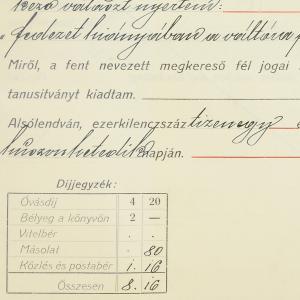 választ nyertem:
„fedezet hiányában a váltóra
Miről, a fent nevezett megkereső fél jogai
tanusitványt kiadtam.
Alsólendván, ezerkilenczszáz tizenegy
huszonhetedik napján.
Díjjegyzék:
Óvásdíj 4 20
Bélyeg a könyvön 2 —
Vitelbér . .
Másolat . 80
Közlés és postabér 1. 16
Összesen 8. 16